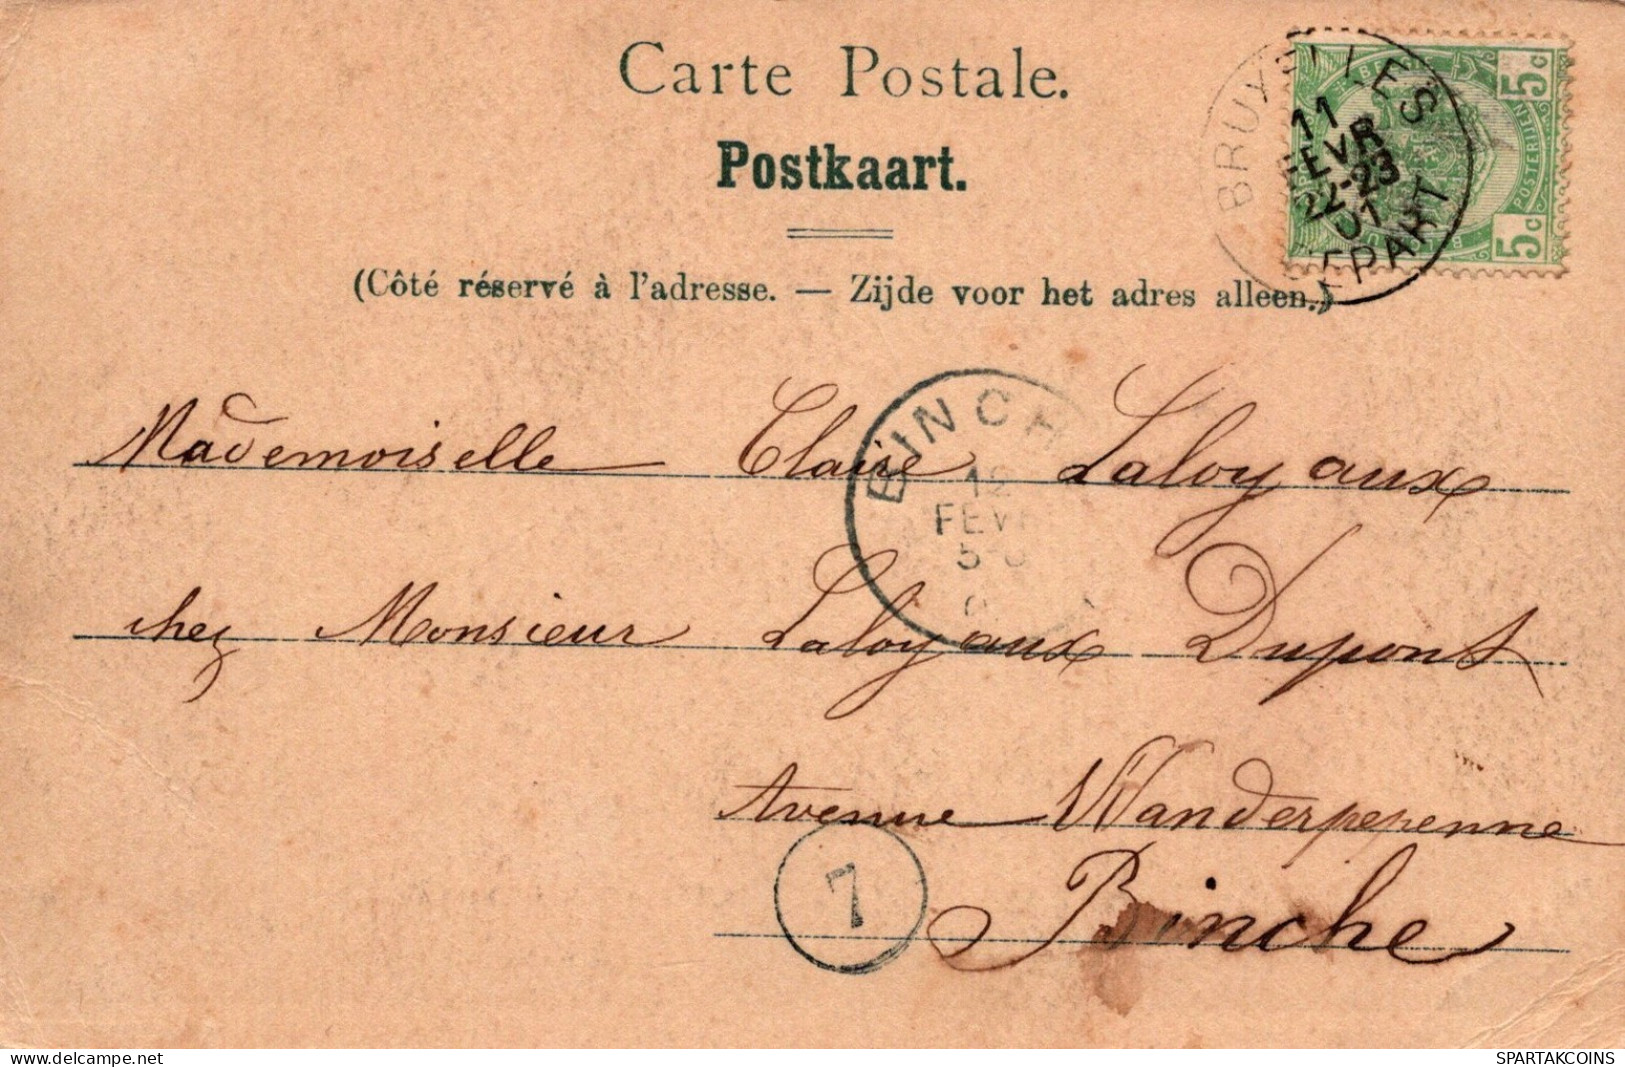 Carte Postale.
Postkaart.
(Côté réservé à l'adresse. — Zijde voor het adres alleen.)
BRUXELLES
11
FEVR
22-23
01
5c
5c
POSTERIJEN
BINCH
12
FEV
Mademoiselle Claire Laloyaux
chez Monsieur Laloyaux Dupont
Avenue Wanderpepenne
7
Binche
www.delcampe.net
SPARTAKCOINS